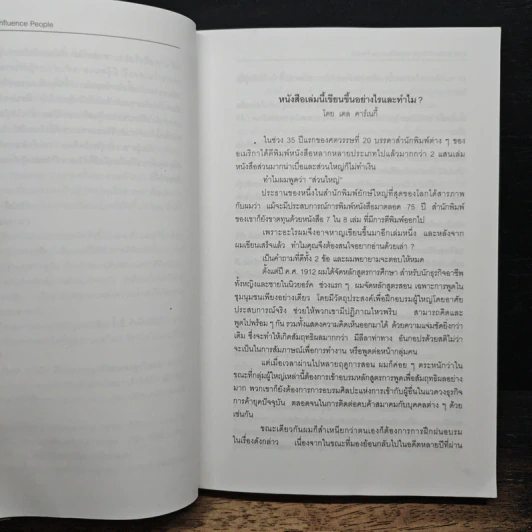 nfluence People
หนังสือเล่มนี้เขียนขึ้นอย่างไรและทำไม ?
โดย เดล คาร์เนกี้
ในช่วง 35 ปีแรกของศตวรรษที่ 20 บรรดาสำนักพิมพ์ต่าง ๆ ของ
อเมริกาได้ตีพิมพ์หนังสือหลากหลายประเภทไปแล้วมากกว่า 2 แสนเล่ม
หนังสือส่วนมากน่าเบื่อและส่วนใหญ่ก็ไม่ทำเงิน
ทำไมผมพูดว่า "ส่วนใหญ่"
ประธานของหนึ่งในสำนักพิมพ์ยักษ์ใหญ่ที่สุดของโลกได้สารภาพ
กับผมว่า แม้จะมีประสบการณ์การพิมพ์หนังสือมาตลอด 75 ปี สำนักพิมพ์
ของเขาก็ยังขาดทุนด้วยหนังสือ 7 ใน 8 เล่ม ที่มีการตีพิมพ์ออกไป
เพราะอะไรผมจึงอาจหาญเขียนขึ้นมาอีกเล่มหนึ่ง และหลังจาก
ผมเขียนเสร็จแล้ว ทำไมคุณจึงต้องสนใจอยากอ่านด้วยเล่า ?
เป็นคำถามที่ดีทั้ง 2 ข้อ และผมพยายามจะตอบให้หมด
ตั้งแต่ปี ค.ศ. 1912 ผมได้จัดหลักสูตรการศึกษา สำหรับนักธุรกิจอาชีพ
ทั้งหญิงและชายในนิวยอร์ค ช่วงแรก ๆ ผมจัดหลักสูตรสอน เฉพาะการพูดใน
ชุมนุมชนเพียงอย่างเดียว โดยมีวัตถุประสงค์เพื่อฝึกอบรมผู้ใหญ่โดยอาศัย
ประสบการณ์จริง ช่วยให้พวกเขามีปฏิภาณไหวพริบ สามารถคิดและ
พูดไปพร้อม ๆ กัน รวมทั้งแสดงความคิดเห็นออกมาได้ ด้วยความแจ่มชัดยิ่งกว่า
เดิม ซึ่งจะทำให้เกิดสัมฤทธิผลมากกว่า มีลีลาท่าทาง อันกอปรด้วยสติไม่ว่า
จะเป็นในการสัมภาษณ์เพื่อการทำงาน หรือพูดต่อหน้ากลุ่มคน
แต่เมื่อเวลาผ่านไปหลายฤดูการสอน ผมก็ค่อย ๆ ตระหนักว่าใน
ขณะที่กลุ่มผู้ใหญ่เหล่านี้ต้องการเข้าอบรมหลักสูตรการพูดเพื่อสัมฤทธิผลอย่าง
มาก พวกเขาก็ยังต้องการการอบรมศิลปะแห่งการเข้ากับผู้อื่นในแวดวงธุรกิจ
การค้ายุคปัจจุบัน ตลอดจนในการติดต่อคบค้าสมาคมกับบุคคลต่าง ๆ ด้วย
เช่นกัน
ขณะเดียวกันผมก็สำเหนียกว่าตนเองก็ต้องการการฝึกฝนอบรม
ในเรื่องดังกล่าว เนื่องจากในขณะที่มองย้อนกลับไปในอดีตหลายปีที่ผ่าน